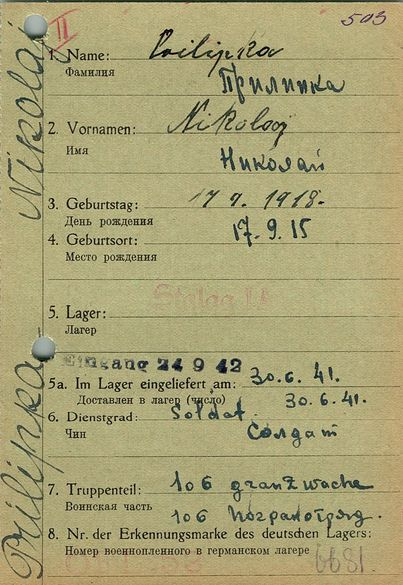 II 503
1. Name: Prilipka
Фамилия
Прилипка
2. Vornamen: Nikolaj
Имя
Николай
3. Geburtstag: 17 9. 1918.
День рождения
17.9.15
4. Geburtsort:
Место рождения
Stalag IA
5. Lager:
Лагер
Eingang 24 9 42
5a. Im Lager eingeliefert am: 30.6.41.
Доставлен в лагер (число) 30.6.41.
6. Dienstgrad: Soldat.
Чин Солдат
7. Truppenteil: 106 granzwache
Воинская часть 106 погранотряд.
8. Nr. der Erkennungsmarke des deutschen Lagers:
Номер военнопленного в германском лагере 6681
Prilipka Nikolaj